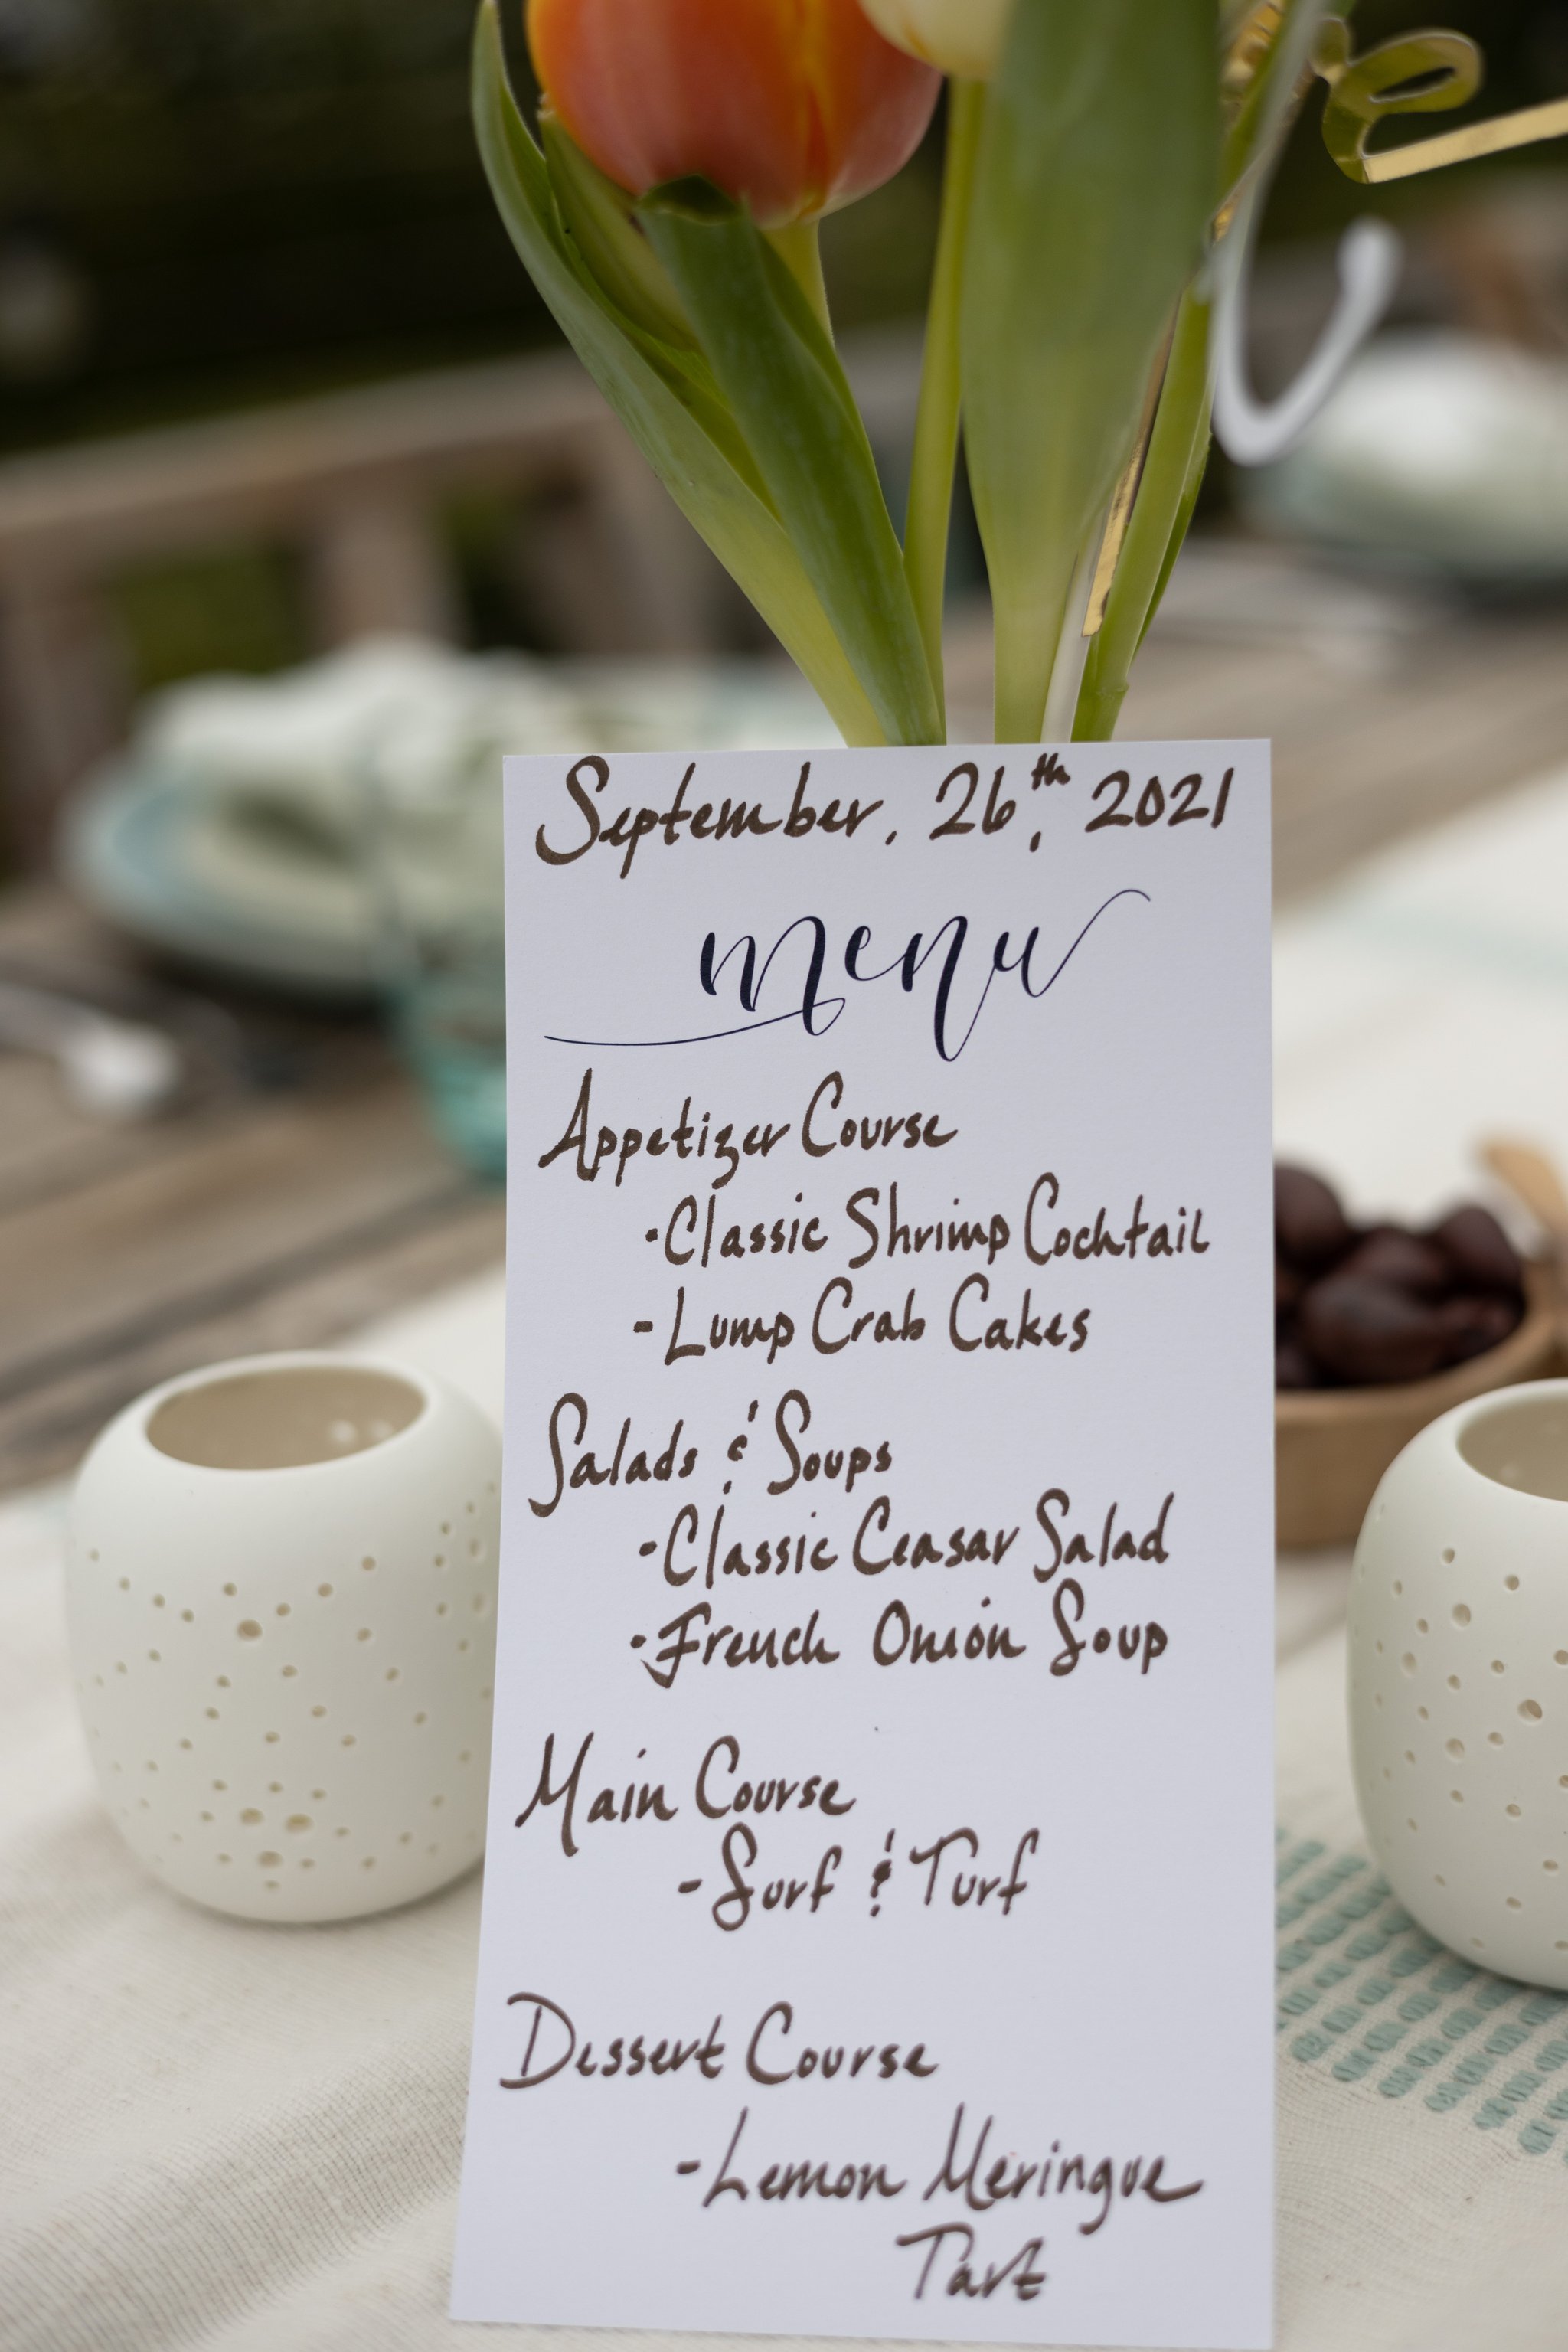 September, 26th, 2021
menu
Appetizer Course
-Classic Shrimp Cocktail
-Lump Crab Cakes
Salads & Soups
-Classic Ceasar Salad
-French Onion Soup
Main Course
-Surf & Turf
Dessert Course
-Lemon Meringue
Tart